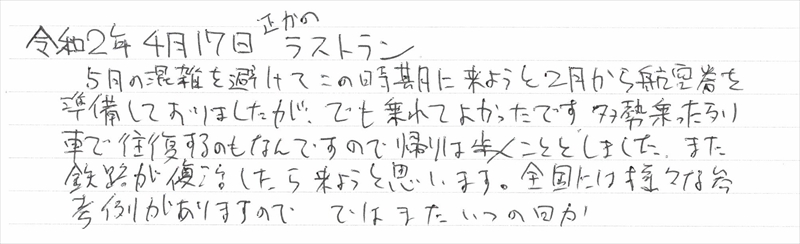 令和2年4月17日 まさかのラストラン
5月の混雑を避けてこの時期に来ようと2月から航空券を
準備しておりましたが、でも乗れてよかったです 多勢乗った列
車で往復するのもなんですので帰りは歩くこととしました。また
鉄路が復活したら来ようと思います。全国には様々な参
考例がありますので ではまたいつの日か